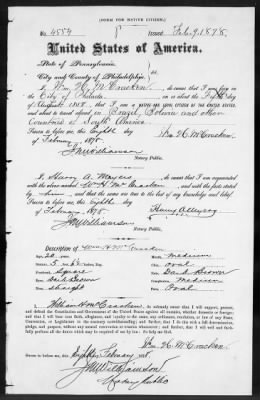 [FORM FOR NATIVE CITIZEN.]
No. 4554 Issued Feb. 9, 1878.
United States of America.
State of Pennsylvania,
City and County of Philadelphia,
I, Wm. H. McCracken, do swear that I was born in
the City of Philada. on or about the Fifth day
of August 1858, that I am a
and about to travel abroad in Brazil, Bolivia and other
Countries of South America
Sworn to before me, this Eighth day
of February 1878 Wm H. McCracken.
J. M. Williamson
Notary Public.
I, Harry A. Meyers, do swear that I am acquainted
with the above-named Wm H. McCracken and with the facts stated
by him, and that the same are true to the best of my knowledge and belief.
Sworn to before me, this Eighth day
of February 1878
J. M. Williamson
Notary Public.
Description of Wm H McCracken
Age, 20 years medium
5 oval
Square Dark Brown
Dark Brown Medium
Straight Oval
I, William H McCracken, do solemnly swear that I will support, protect,
and defend the Constitution and Government of the United States against all enemies, whether domestic or foreign;
and that I will bear true faith, allegiance, and loyalty to the same, any ordinance, resolution, or law of any State,
Convention, or Legislature to the contrary notwithstanding; and further, that I do this with a full determination,
pledge, and purpose, without any mental reservation or evasion whatsoever; and further, that I will well and faithfully
perform all the duties which may be required of me by law: So help me God.
Wm. H. McCracken.
Sworn to before me, this
Eighth February 1878.
J M Williamson
Notary Public